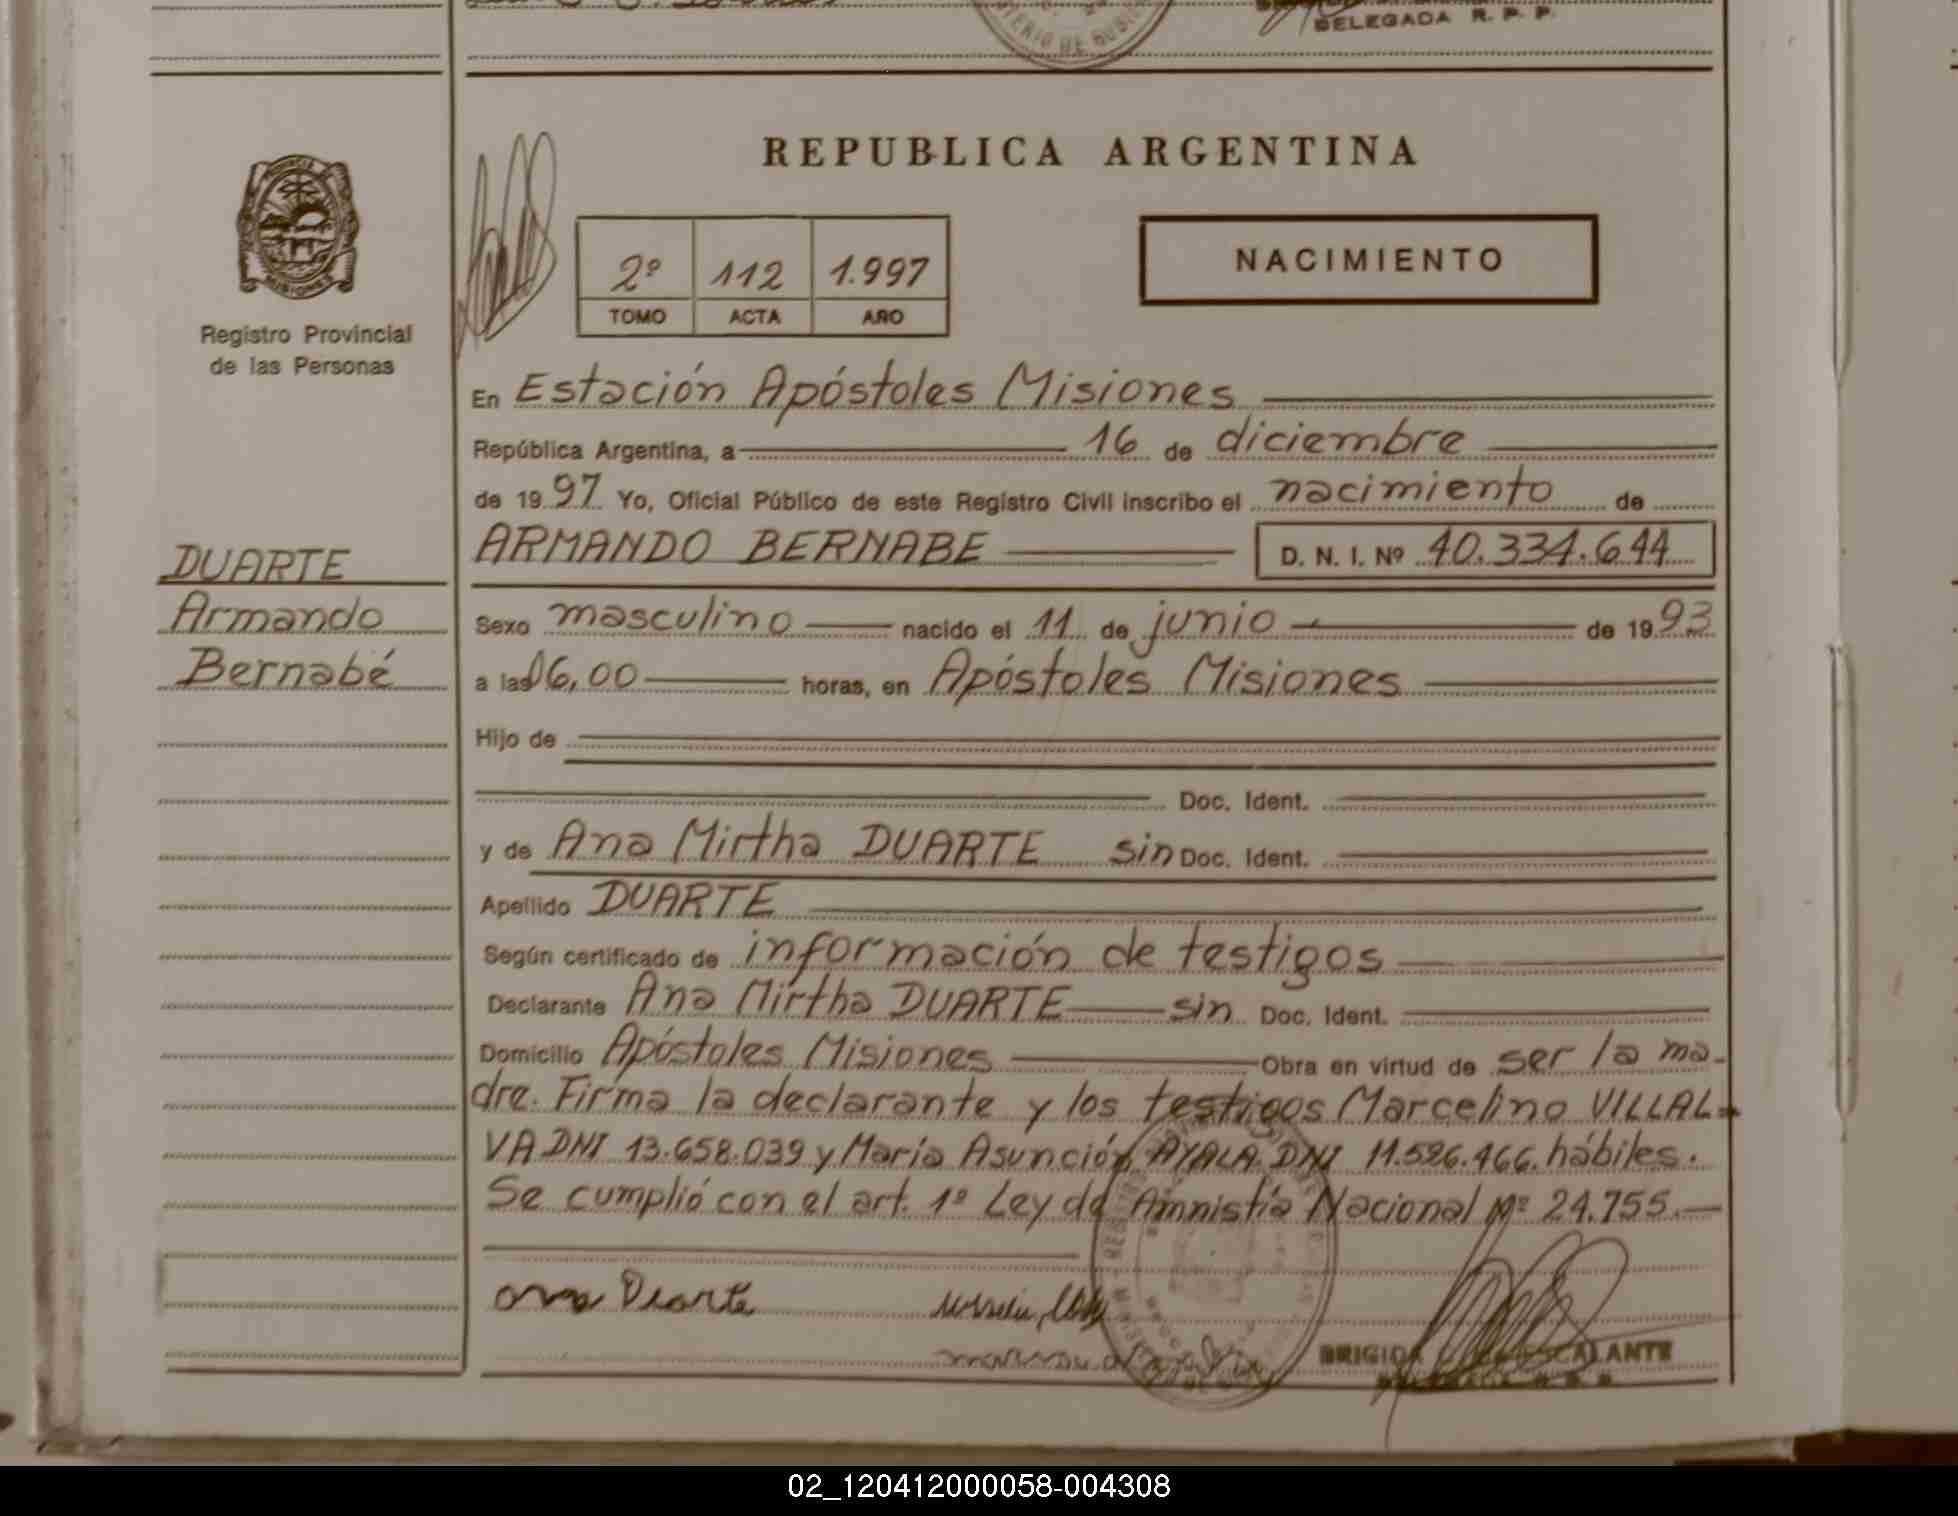 DELEGADA R. P. P.
REPUBLICA ARGENTINA
MISIONES
Registro Provincial
de las Personas
2º 112 1.997
TOMO ACTA AÑO
NACIMIENTO
En Estación Apóstoles Misiones
República Argentina, a 16 de diciembre
de 1997 Yo, Oficial Público de este Registro Civil inscribo el nacimiento de
DUARTE
Armando
Bernabé
ARMANDO BERNABE D. N. I. Nº 40.334.644
Sexo masculino nacido el 11 de junio de 1993
a las 06,00 horas, en Apóstoles Misiones
Hijo de
Doc. Ident.
y de Ana Mirtha DUARTE sin Doc. Ident.
Apellido DUARTE
Según certificado de información de testigos
Declarante Ana Mirtha DUARTE sin Doc. Ident.
Domicilio Apóstoles Misiones Obra en virtud de ser la ma-
dre. Firma la declarante y los testigos Marcelino VILLAL-
VA DNI 13.658.039 y María Asunción AYALA DNI 11.526.466. hábiles.
Se cumplió con el art. 1º Ley de Amnistía Nacional Nº 24.755.
ana Duarte
BRIGIDA ESCALANTE
02_120412000058-004308